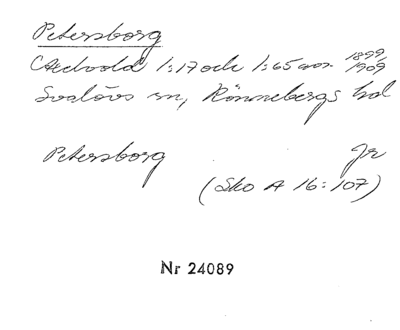 Petersborg
Axelvold 1:17 och 1:65 m.m. 1899, 1909
Svalövs sn, Rönnebergs hd
Petersborg Jr
(Sko A 16:107)
Nr 24089